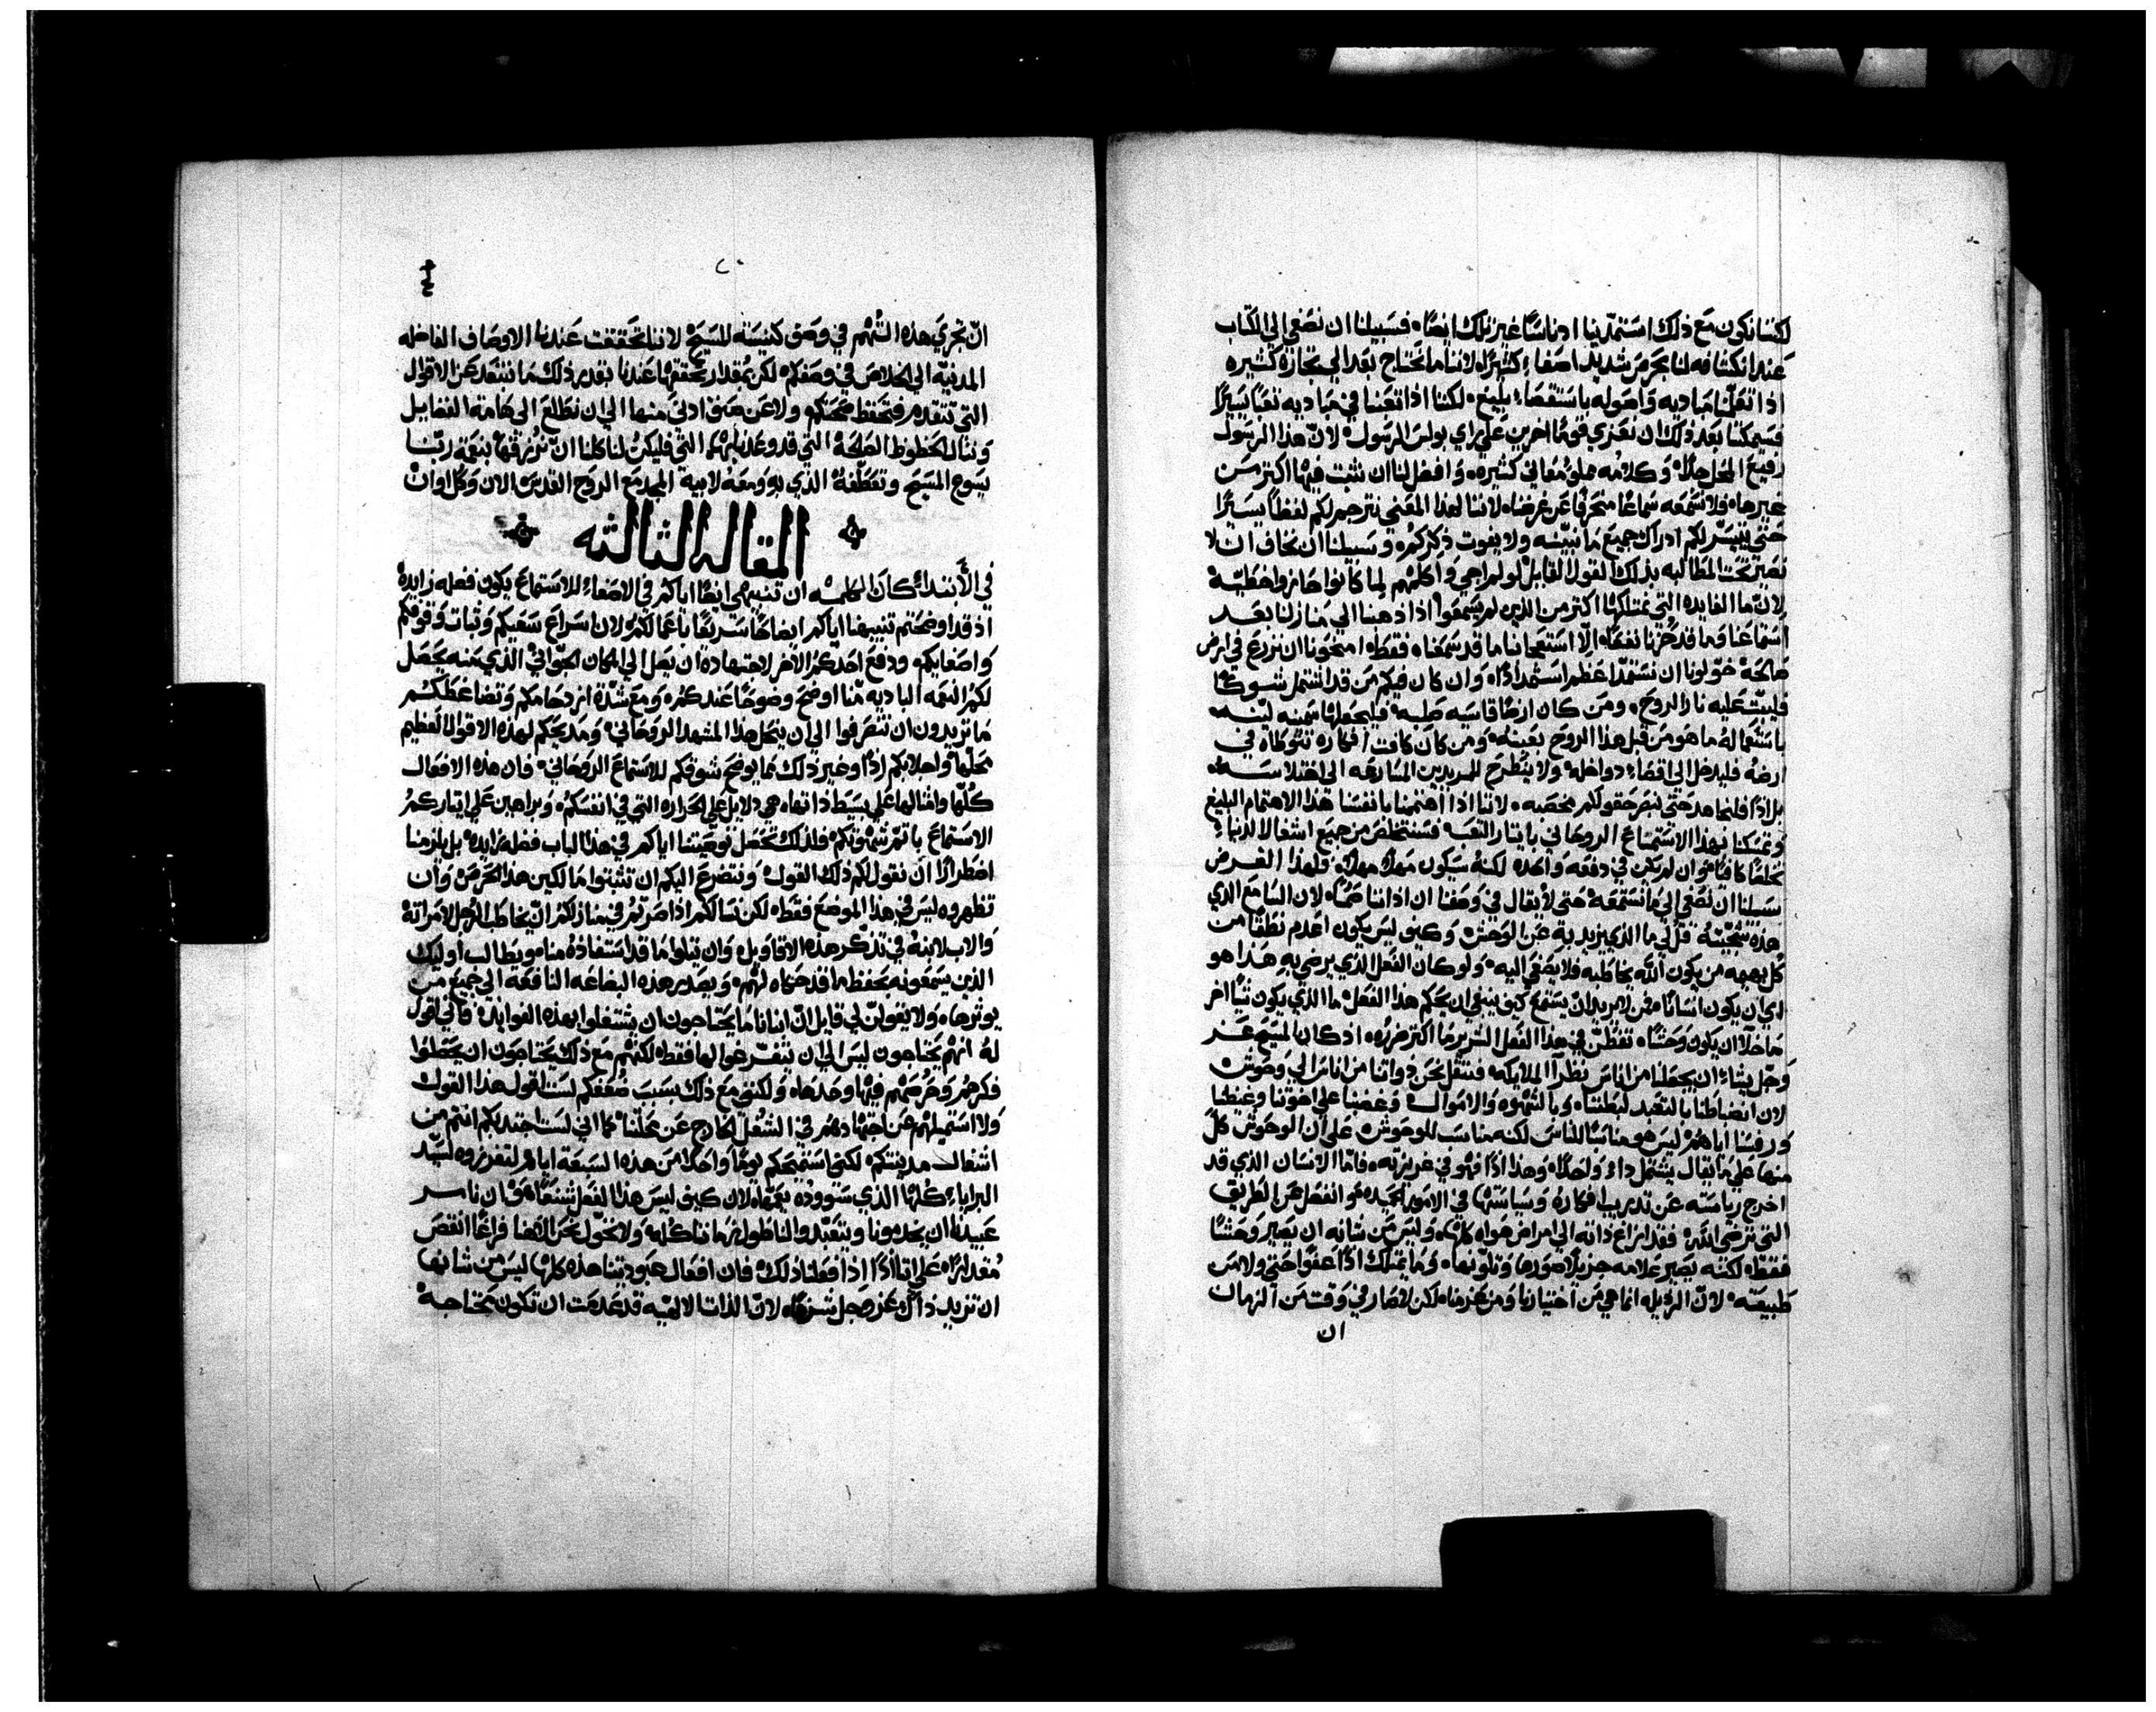 لكننا نكون مع ذلك استمدّينا ادناسًا غير تلك ايضًا فسبيلنا ان نصغي الي الكتاب
عند انكشافه لنا بحرص شديد اصغاءً كثيرًا لاننا ما نحتاج بعد الي كثيره
اذا تعلّمنا مباديه واصوله باستقصاءٍ بليغ لكننا اذا تعبنا في مباديه تعبًا يسيرًا
فسيمكننا بعد ذلك ان نعزي قومًا اخرين علي راي بولس الرسول لانّ هذا الرسول
رفيع المحل جدًّا وكلامه مملوٌ معاني كثيرة وافضل لنا ان نثبت فيها اكثر من
غيرها ولا نسمعه سماعًا منحرفًا عن غرضنا لاننا لهذا المعني نترجم لكم لفظًا يسيرًا
حتي يتيسّر لكم ادراك جميع ما نبيّنه ولا يفوت ذكركم وسبيلنا ان نخاف ان لا
نصير تحت المطالبه بذلك القول القايل لو لم اجي واكلمهم لما كانوا حازوا خطيّة
لان ما الفايده التي نمتلكها اكثر من الذين لم يسمعوا اذا ذهبنا الي منازلنا بعد
استماعنا وما قد حُزنا نفعًا الّا استعجابنا ما قد سمعناه فقط امنحونا ان نزرع في ارض
صالحة خوّلونا ان نستمدّ اعظم استمدادًا وان كان فيكم من قد اشتمل شوكًا
فليبثّ عليه نار الروح ومن كان ارضًا قاسيه صلبه فليجعلها سمينه لينه
باستعماله ما هو من قبل هذا الروح بعينه ومن كان كانت افكاره تتوطاه في
ارضه فليدخل الي اقصاء دواخله ولا ينطرح للمريدين المسارعه الي اختلاسه
بل اذًا فلنجاهد حتي نبصر حقولكم مخصبه لاننا اذا اهتممنا بانفسنا هذا الاهتمام البليغ
وتمسكنا بهذا الاستماع الروحاني بايثار التعب فسنتخلص من جميع اشغال الدنياءِ
تخلصًا كافيًا وان لم يكن في دفعه واحده لكنه سيكون مهلًا مهلًا فلهذا الغرض
سبيلنا ان نصغي الي ما نستمعه حتي لا يقال في وصفنا ان اذاننا صمًا لان السامع الذي
هذه سجيّته قل لي ما الذي يزيد به عن الوحش وكيف ليس يكون اعدم نطقًا من
كل بهيمه من يكون اللّه يخاطبه فلا يصغي اليه ولو كان الفعل الذي يرضي به هذا هو
اي ان يكون انسانًا فمن لا يريد ان يسمع كيف ينبغي ان يحكم هذا الفعل ما الذي يكون شيًا اخر
ما خلا ان يكون وحشًا تفطّن في هذا الفعل الشرير ما اكثر ضرره اذ كان المسيح عز
وجل يشاءُ ان يجعلنا من اناس نظرآ الملايكه فننقل نحن ذواتنا من اناس الي وحوش
لان انضباطنا بالتعبد لبطننا وبالشهوه والاموال وغضبنا علي اخوتنا وغيظنا
ورفسنا اياهم ليس هو مناسبًا للناس لكنه مناسب للوحوش علي ان الوحوش كل
منها علي ما يقال يشتمل داءً واحدًا وهذا اذًا فهو في غريزته فامّا الانسان الذي قد
اخرج رياسته عن تدريب افكاره وسياستها في الامور الحميده وانفصل من الطريق
التي ترضي اللّه فقد ازاغ ذاته الي امراض هواه كلها وليس من شانه ان يصير وحشًا
فقط لكنه يصير علامه جزيلًا صورها وتلوّنها وما يمتلك اذًا عفوًا حتي ولا من
طبيعته لانّ الرذيله انما هي من اختيارنا ومن عزمنا لكن لا صار في وقت من النهار
ان
٢٠
انّ تجري هذه التُهم في وصف كنيسة المسيح لاننا تحققت عندنا الاوصاف الفاضله
المدنيّه الي الخلاص في وصفكم لكن بمقدار تحققها عندنا بقدر ذلك ما نبتعد عن الاقوال
التي تتقدم فتحفظ صحتكم ولا عن صنف ادني منها الي ان نطلع الي هامة الفضايل
وننال الحظوظ الصالحة التي قد وعدنا بها التي فليكن لنا كلنا انّ نُرزقها بنعمة ربّنا
يسوع المسيح وتعطّفه الذي به ومعه لابيه المجد مع الروح القدس الان وكل اوانْ
المقاله الثالثه
في الأبتداءِ كان الكلمه ان تنبيهي ايضًا اياكم في الاصغاءِ للاستماع يكون فعله زايدة
اذ قد اوضحتم تنبيهنا اياكم ايضاحًا سريعًا باعمالكم لان اسراع سعيكم وثبات وقوفكم
واصغايكم ودفع احدكم الاخر لاجتهاده ان يصل الي المكان الجوّانيّ الذي منه يحصل
لكم النغمه الباديه منّا اوضح وضوحًا عندكم ومع شدّة ازدحامكم وتضاغطكم
ما تريدون ان تنصرفوا الي ان ينحل هذا المشهد الروحاني ومديحكم لهذه الاقوال العظيم
محلّها واجلالكم اذًا وغير ذلك مما يوضح شوقكم للاستماع الروحاني فان هذه الافعال
كلّها وامثالها علي بسيط ذاتها هي دلايل علي الحراره التي في انفسكم وبراهين علي ايثاركم
الاستماع باتمّ شهوتكم فلذلك تحصل توصيتنا اياكم في هذا الباب فضله زايدة بل يلزمنا
اضطرارًا ان نقول لكم ذلك القول ونتضرع اليكم ان تثبتوا مالكين هذا الحرص وان
تظهروه ليس في هذا الموضع فقط لكن نسالكم اذا صرتم في منازلكم ان يخاطب الرجل لامراته
والاب لابنه في تذكّر هذه الاقاويل وان يتلوا ما قد استفاده منا ويطالب اوليك
الذين يسمعونه بحفظ ما قد حكاه لهم ويصدر هذه البضاعه النافعه الي جميع من
يوثرها ولا يقولنّ لي قايل انّ ابنانا ما يحتاجون ان يشتغلوا بهذه الفوايد فاني اقول
له انهم يحتاجون ليس الي ان يتفرّغوا لها فقط لكنهم مع ذلك يحتاجون ان يجعلوا
فكرهم وحرصهم فيها وحدها ولكنني مع ذلك بسبب ضعفكم لست اقول هذا القول
ولا استميلهم عن اجتهادهم في الشغل الخارج عن محلّنا كما اني لست اجتذبكم انتم من
اشغال مدينتكم لكني استمنحكم يومًا واحدًا من هذه السبعة ايام لتفرزوه لسيّد
البراياءِ كلها الذي ستوودّه بعمّه لان كيف ليس هذا الفعل شنعًا هو ان نامر
عبيدنا ان يخدمونا ويتعبّدوا لنا طول زماننا كله ولا نخوّل نحن الاهنا فراغًا انقص
مقدارًا علي انّا اذًا اذا فعلنا ذلك فان افعال عبوديتنا هذه كلها ليس من شانها
ان تزيد ذاك عز وجل شرفًا لانّ الذات الالهيّه قد عدمت ان تكون محتاجةْ